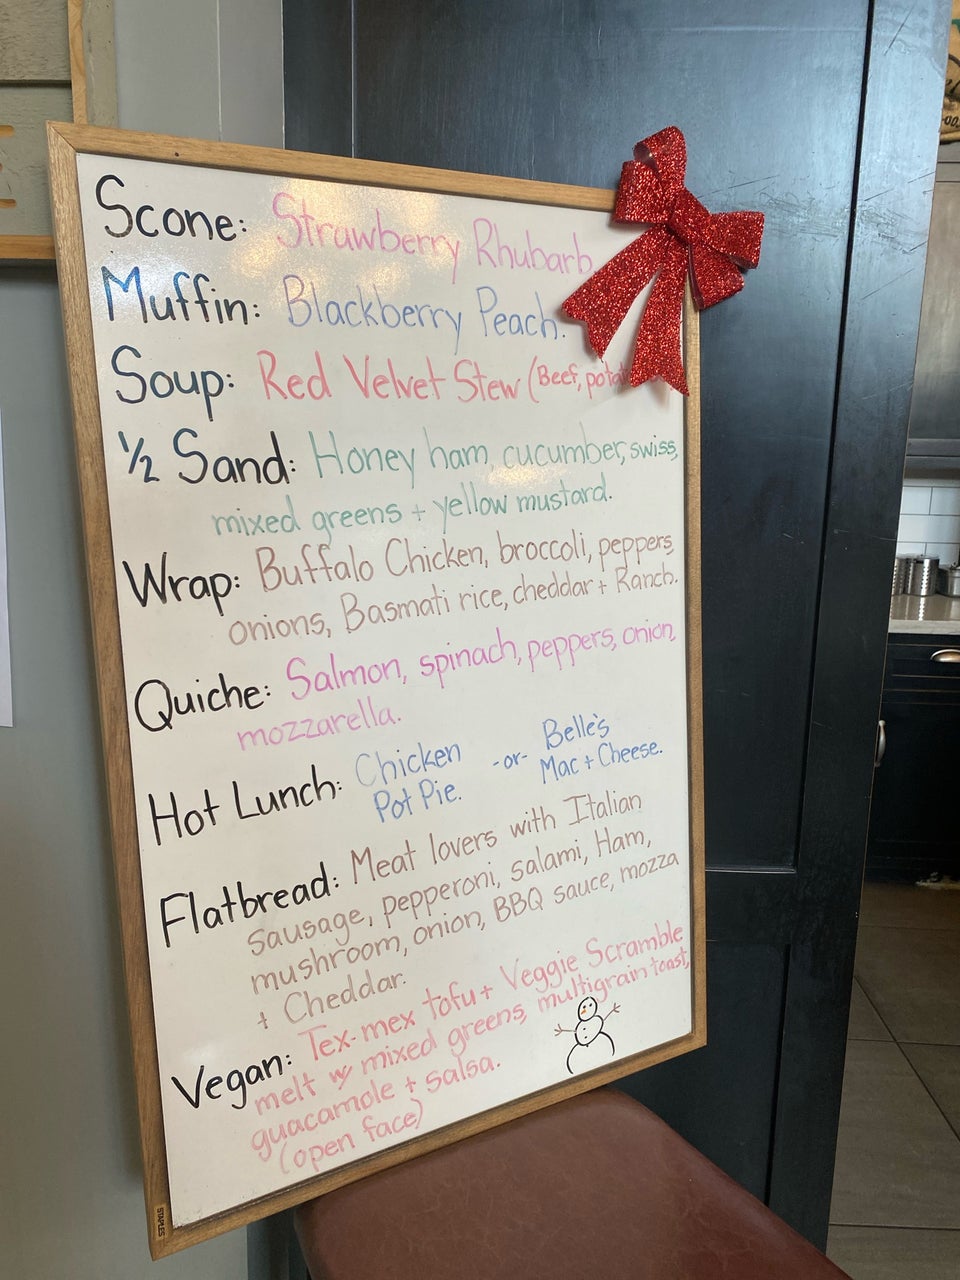 Scone: Strawberry Rhubarb
Muffin: Blackberry Peach.
Soup: Red Velvet Stew (Beef,
½ Sand: Honey ham, cucumber, swiss,
mixed greens + yellow mustard.
Wrap: Buffalo Chicken, broccoli, peppers,
onions, Basmati rice, cheddar + Ranch.
Quiche: Salmon, spinach, peppers, onion,
mozzarella.
Hot Lunch: Chicken Pot Pie. -or- Belle's Mac + Cheese.
Flatbread: Meat lovers with Italian
sausage, pepperoni, salami, Ham,
mushroom, onion, BBQ sauce, mozza
+ Cheddar.
Vegan: Tex-mex tofu + Veggie Scramble
melt w/ mixed greens, multigrain toast,
guacamole + salsa.
(open face)
STAPLES